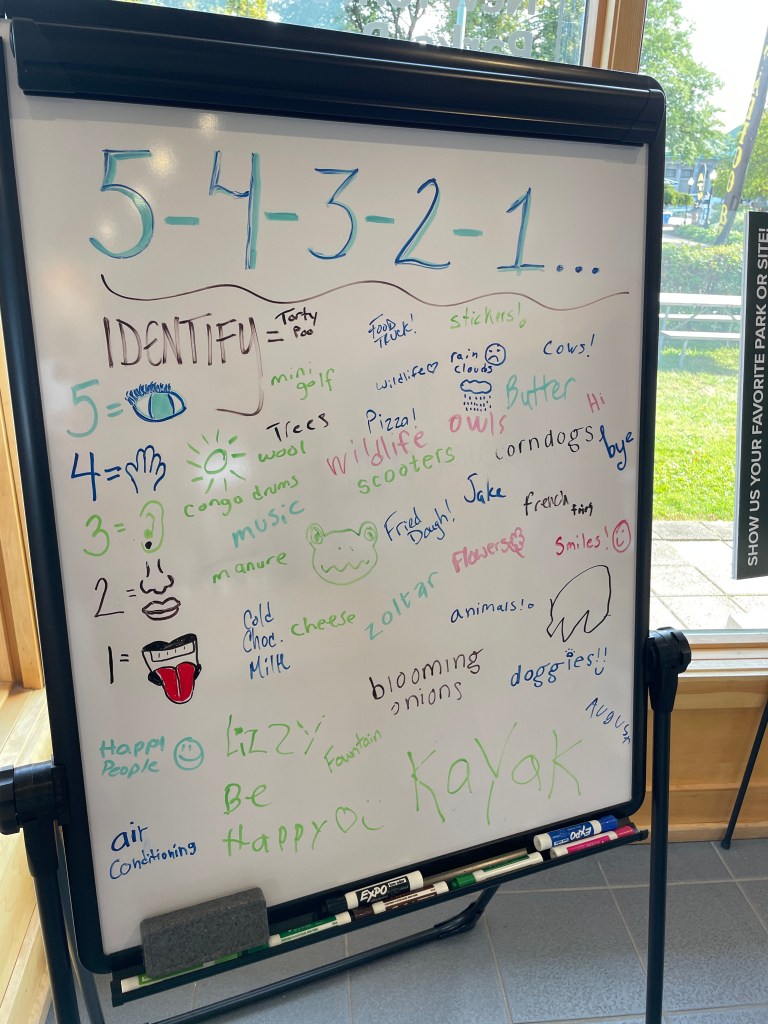 5-4-3-2-1...
IDENTIFY =
Torty
Poo
FOOD
TRUCK!
stickers!
mini
golf
wildlife
rain
clouds
cows!
5=
Butter
Hi
Trees
Pizza!
owls
4=
wool
wildlife
corndogs
bye
scooters
congo drums
Jake
french fries
3=
music
Fried
Dough!
Flowers
Smiles!
manure
2=
Cold
Choc.
Milk
cheese
zoltar
animals!
1=
blooming
onions
doggies!!
August
Happy
People
Lizzy
Fountain
Kayak
Be
Happy
air
Conditioning
EXPO
EXPO
SHOW US YOUR FAVORITE PARK OR SITE!